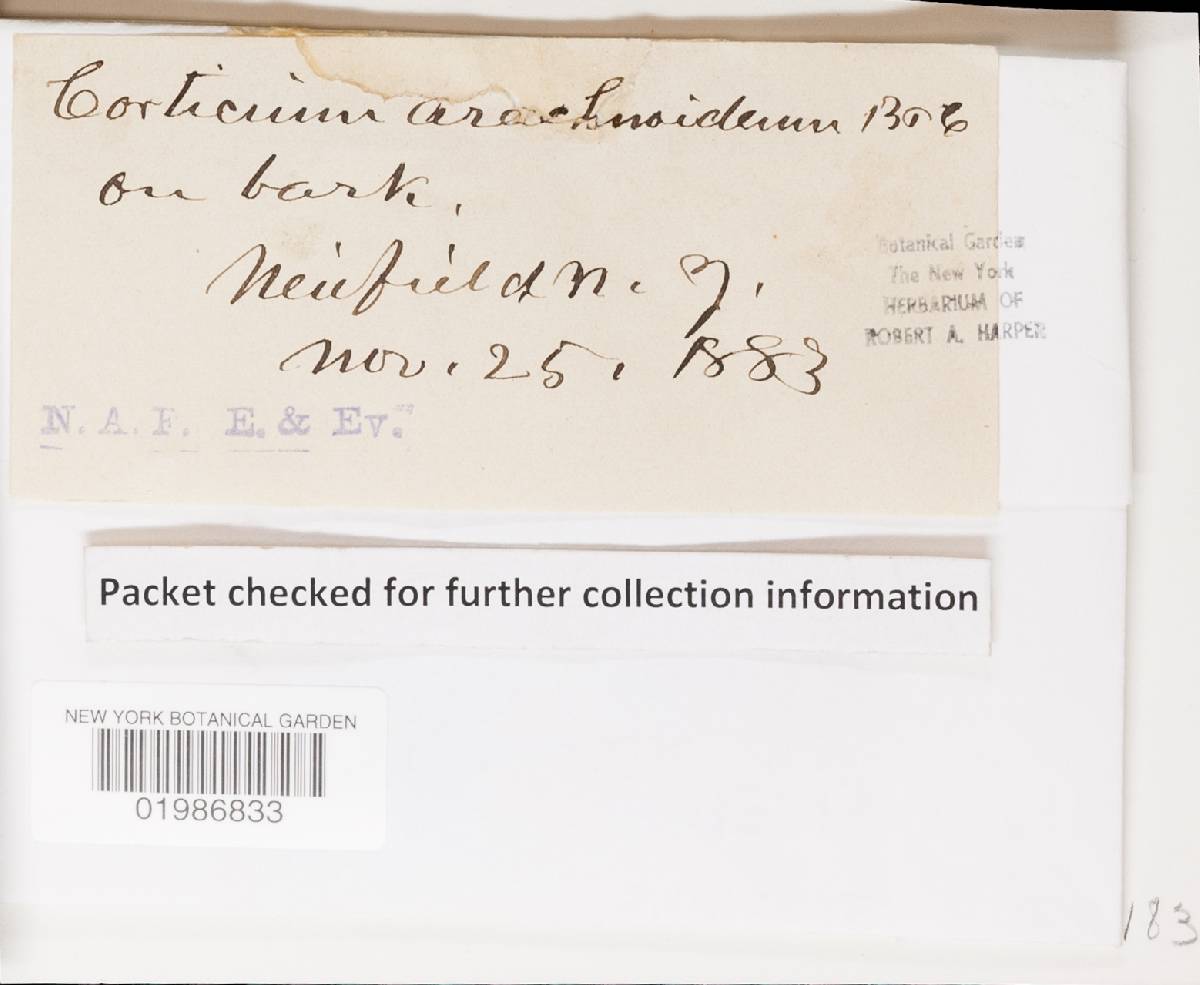 Corticium arachnoideum B&C
on bark.
Newfield N. J.
Nov. 25, 1883
Botanical Garden
The New York
HERBARIUM OF
ROBERT A. HARPER
N. A. F. E. & Ev.
Packet checked for further collection information
NEW YORK BOTANICAL GARDEN
01986833
183